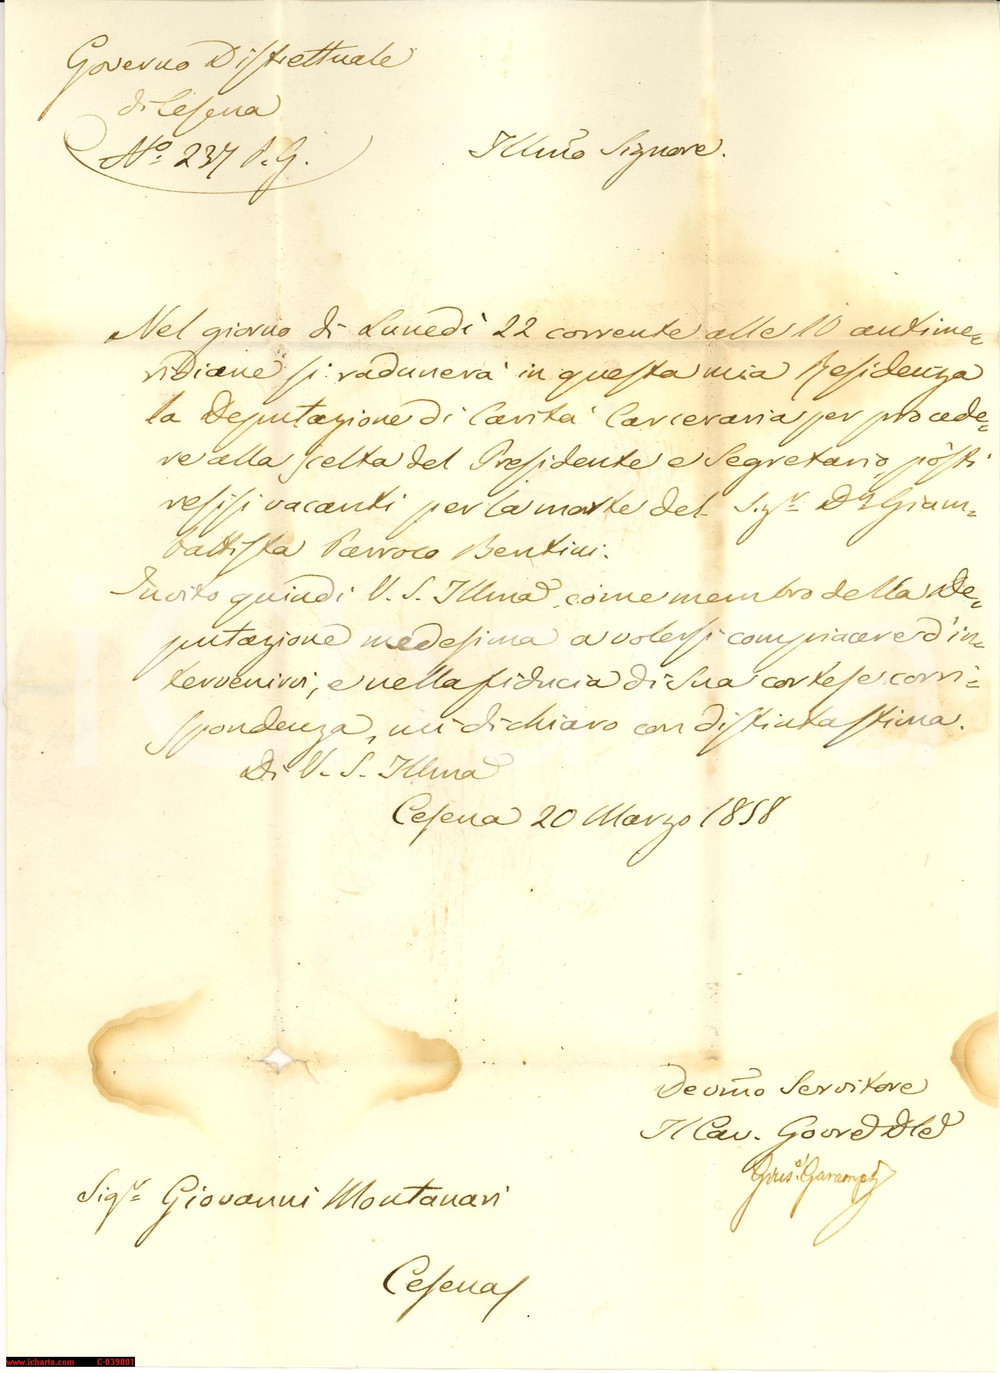 Governo Distrettuale
di Cesena
N.º 237 P. G.
Illmo Signore.
Nel giorno di Lunedì 22 corrente alle 10 antime=
ridiane si radunerà in questa mia Residenza
la Deputazione di Carità Carceraria per procede=
re alla scelta del Presidente e Segretario, posti
resisi vacanti per la morte del Sigr. Dn Giam=
battista Parroco Bentini.
Invito quindi V. S. Illma, come membro della De=
putazione medesima a volersi compiacere d'in=
tervenirvi, e nella fiducia di Sua cortese corri=
spondenza, mi dichiaro con distinta stima.
Di V. S. Illma
Cesena 20 Marzo 1858
Devmo Servitore
Il Cav. Govre Dle
Garampi
Sigr. Giovanni Montanari
Cesena
www.icharta.com C-039001